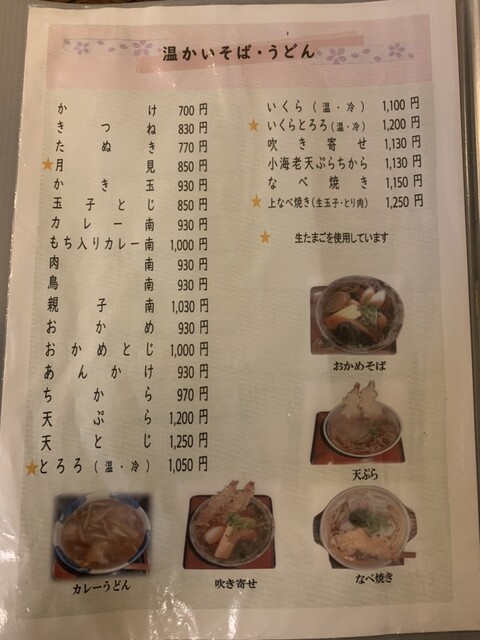 温かいそば・うどん
かけ 700円
きつね 830円
たぬき 770円
★月見 850円
かき玉 930円
玉子とじ 850円
カレー南 930円
もち入りカレー南 1,000円
肉南 930円
鳥南 930円
親子南 1,030円
おかめ 930円
おかめとじ 1,000円
あんかけ 930円
ちから 970円
天ぷら 1,200円
天とじ 1,250円
★とろろ(温・冷) 1,050円
いくら(温・冷) 1,100円
★いくらとろろ(温・冷) 1,200円
吹き寄せ 1,130円
小海老天ぷらちから 1,130円
なべ焼き 1,150円
★上なべ焼き(生玉子・とり肉) 1,250円
★ 生たまごを使用しています
おかめそば
天ぷら
カレーうどん
吹き寄せ
なべ焼き